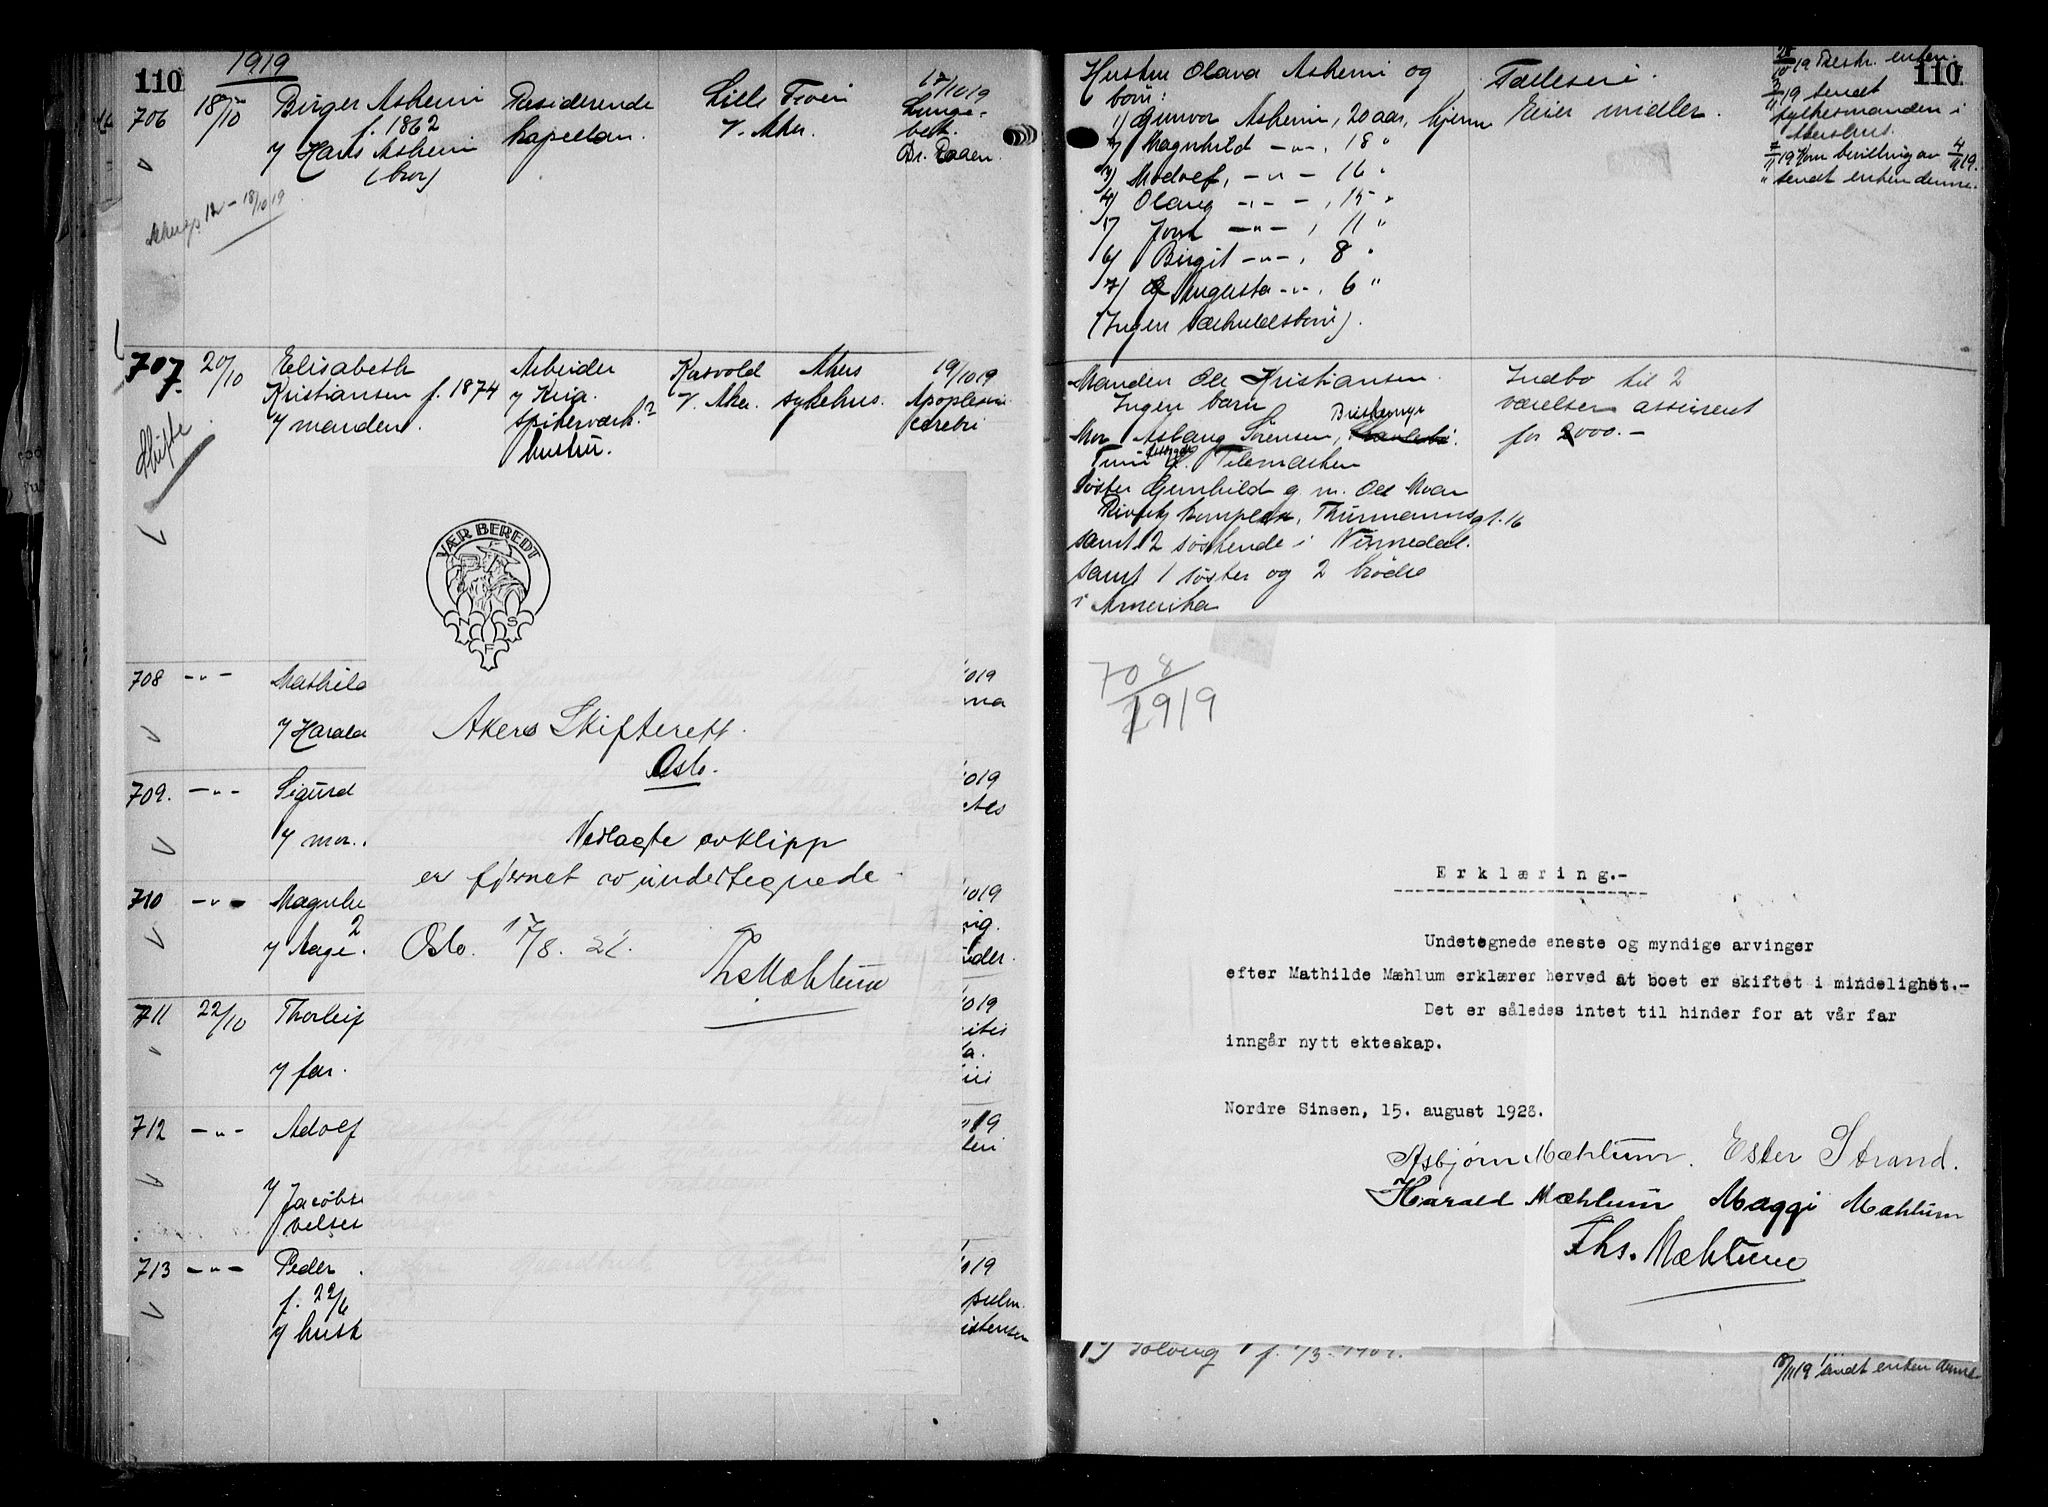 110
1919
706 18/10 Birger Askeim Residerende Lille Froen 17/10 19
f. 1862 kapellan. V. Aker. Lunge-
v/ Hans Askeim bet.
(bror) Dr.
12 - 18/10 19
707. 20/10 Elisabeth Arbeider Kasvold Akers 19/10 19
Kristiansen f. 1874 v/ Kria. V. Aker. sykehus. Apoplexi
v/ manden. spikerverk. cerebri
hustru.
Skifte
VÆR BEREDT
N S
F
708 -"- Mathild 1019
v/ Harald
Akers Skifterett.
Oslo.
709. -"- Sigurd 1019
v/ mor.
Vedlagte avklipp
er fjernet av undertegnede.
710 -"- Magnhi 1019
v/ Aage
Oslo 17/8. 28.
Ths Mæhlum
711 22/10 Thorleif 1019
v/ far.
712 -"- Adolf 19
v/ Jacobs
velser
713 -"- Peder 1019
f. 22/6 pulm.
v/ hust istensen
110
Hustru Olava Askeim og Fælleseie.
born: Eier midler.
1/ Gunvor Askeim, 20 aar, hjemme
2/ Magnhild -"-, 18 "
3/ Modolf, -"- 16 "
4/ Olaug -"-, 15 "
5/ Jon -"-, 11 "
6/ Birgit -"-, 8 "
7/ Augusta -"-, 6 "
(Ingen særkuldsbarn).
28/10 19 Bestr. enken.
3/11 19 sendt
fylkesmanden i
Akershus.
7/11 19 Kom bevilling av 4/11 19.
" sendt enken denne.
Manden Ole Kristiansen. Indbo til 2
Ingen barn værelser assurert
Mor Aslaug Sørensen, for 2000.-
Tinn Telemarken
Søster Gunhild g. m. Ole Moar
Thurmannsgt. 16
samt 2 søskende i Numedal.
samt 1 søster og 2 brødre
i Amerika
708
1919
Erklæring.-
Undetegnede eneste og myndige arvinger
efter Mathilde Mæhlum erklærer herved at boet er skiftet i mindelighet.-
Det er således intet til hinder for at vår far
inngår nytt ekteskap.
Nordre Sinsen, 15. august 1928.
Asbjørn Mæhlum. Ester Strand.
Harald Mæhlum Maggi Mæhlum
Ths. Mæhlum
Solveig f. /3 1901.
8/11 19 sendt enken denne